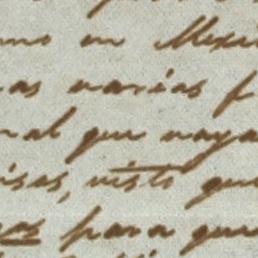 en Mexi
as varias f
nal que vaya
isas, visto que
para que